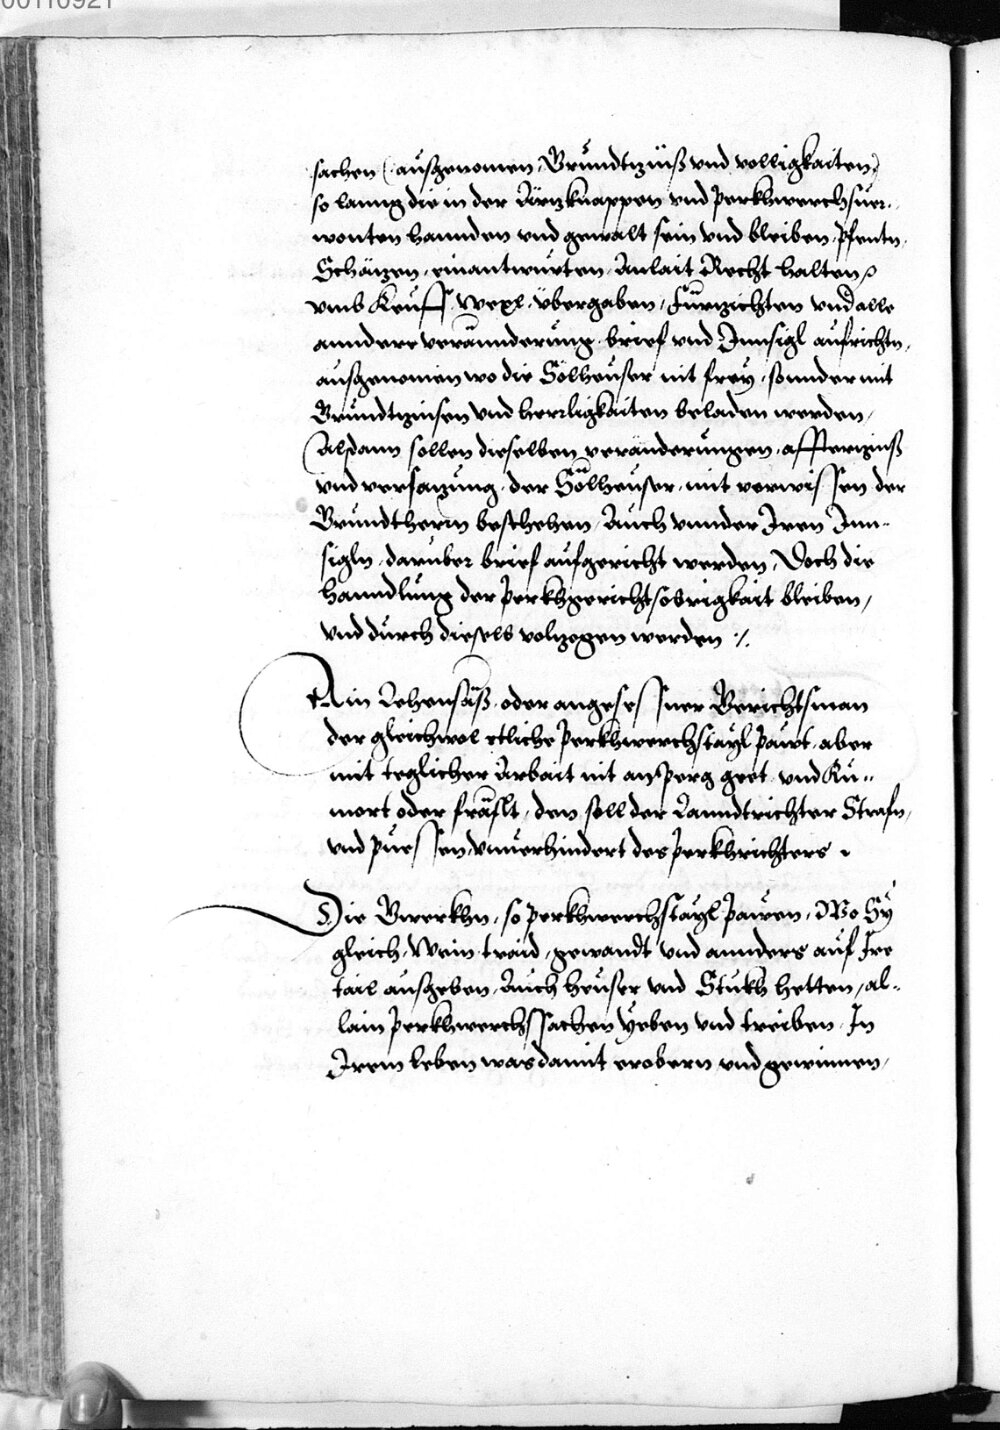 00110921
sachen (ausgenomen, Grundtzinß vnd volligkaiten)
so lanng die in der Ärtzknappen vnd perkhwerchsuer-
wonten hannden vnd gewalt sein vnd bleiben, pfentn,
Schätzen, einantwurten, Anlait Recht halten
vmb Keuff, Wexl, übergaben, Fürzichten vnd alle
anndere veraͤnnderung, brief vnd Innsigl aufrichtn,
ausgenomen wo die Sölheuser nit frey, sonnder mit
Grundtzinsen vnd herligkaiten beladen werden,
Alsdann sollen dieselben veränderungen, affterzinß
vnd versatzung, der Sölheuser, mit verwissen der
Grundtherrn beschehen, Auch vnnder Iren Inn-
sigln, daruber brief aufgericht werden, Doch die
hanndlung der perkhgerichtsobrigkait bleiben,
vnd durch dieselb volzogen werden ./.
Ain Lehensäß, oder angesessner Gerichtsman
der gleichwol etliche perkhwerchstayl pawt, aber
mit teglicher Arbait nit an perg geet, vnd Ru-
mort oder fräflt, den soll der Lanndtrichter Strafn,
vnd puessen, vnuerhindert des perkhrichters .
Die Gwerkhn, so perkhwerchstayl pawen, Wo Sy
gleich, Wein, traid, gewandt vnd annders auf Ire
tail ausgeben, Auch heuser vnd Stukh hetten, al-
lain perkhwerchssachen yeben vnd treiben, In
Irem leben was damit erobern vnd gewinnen,